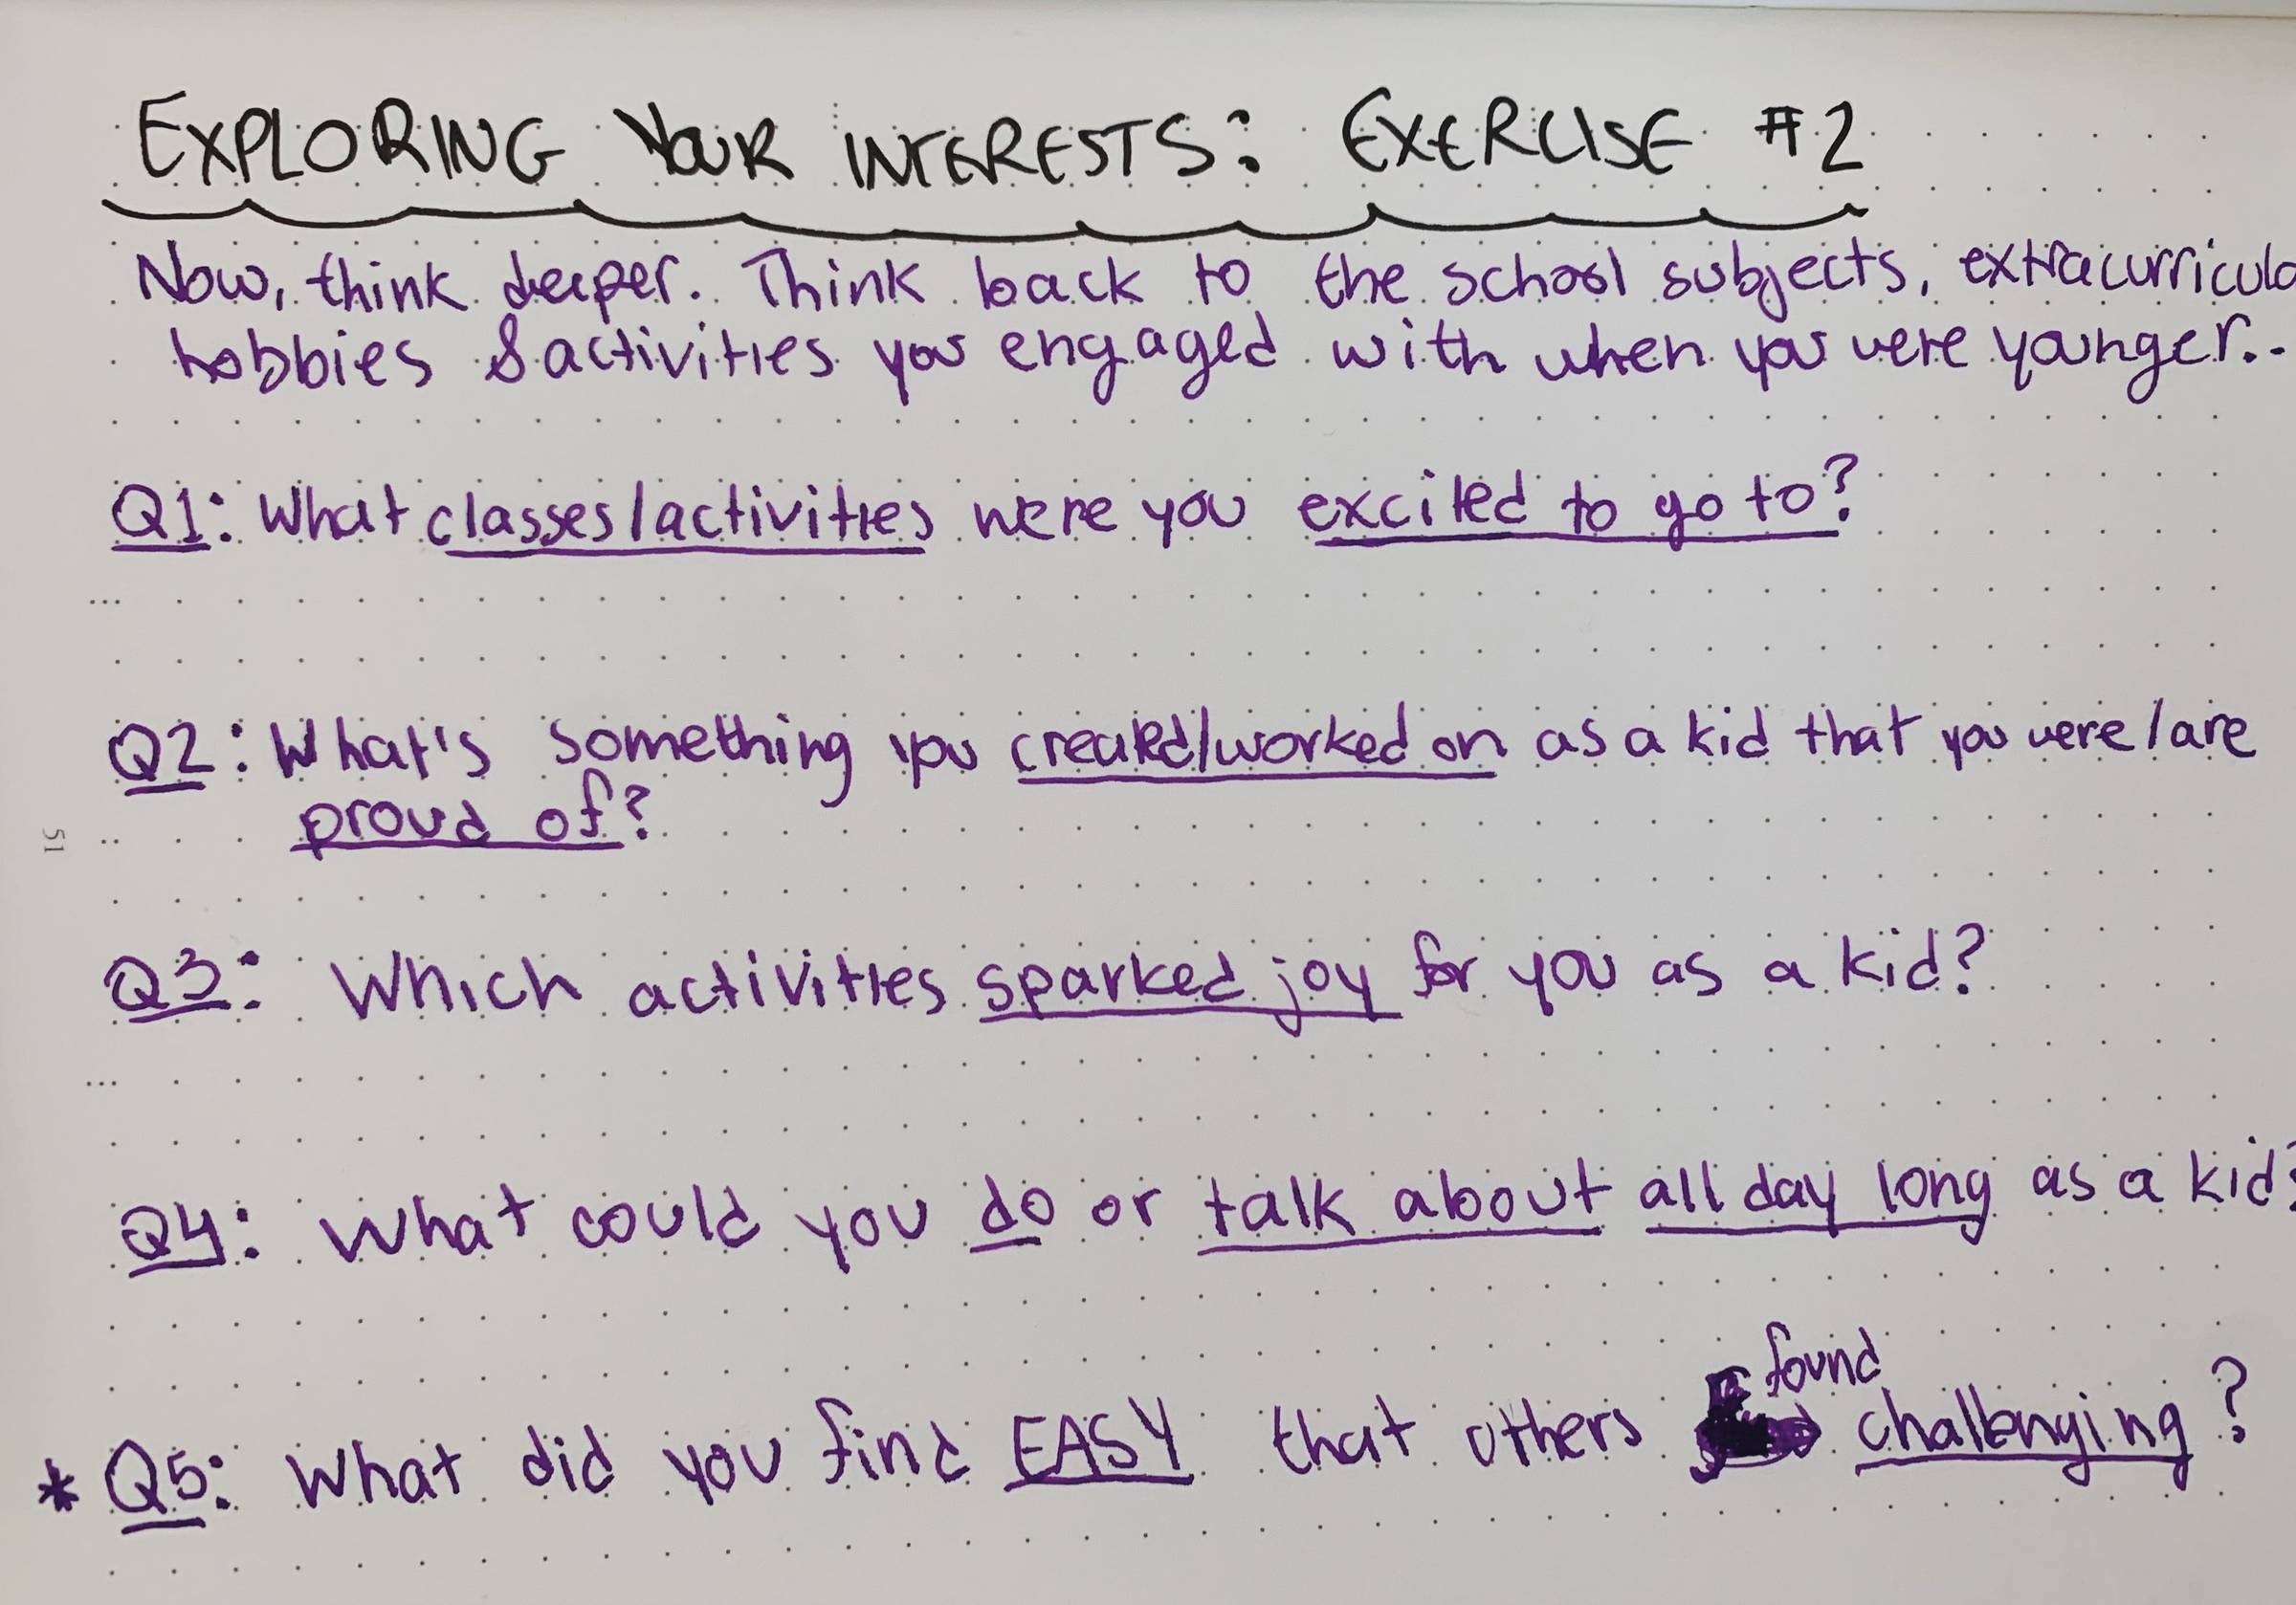 EXPLORING YOUR INTERESTS: EXERCISE #2
Now, think deeper. Think back to the school subjects, extracurricula
hobbies & activities you engaged with when you were younger..
Q1: What classes/activities were you excited to go to?
Q2: What's something you created/worked on as a kid that you were/are
proud of?
51
Q3: Which activities sparked joy for you as a kid?
Q4: What could you do or talk about all day long as a kid?
found
* Q5: What did you find EASY that others challenging?